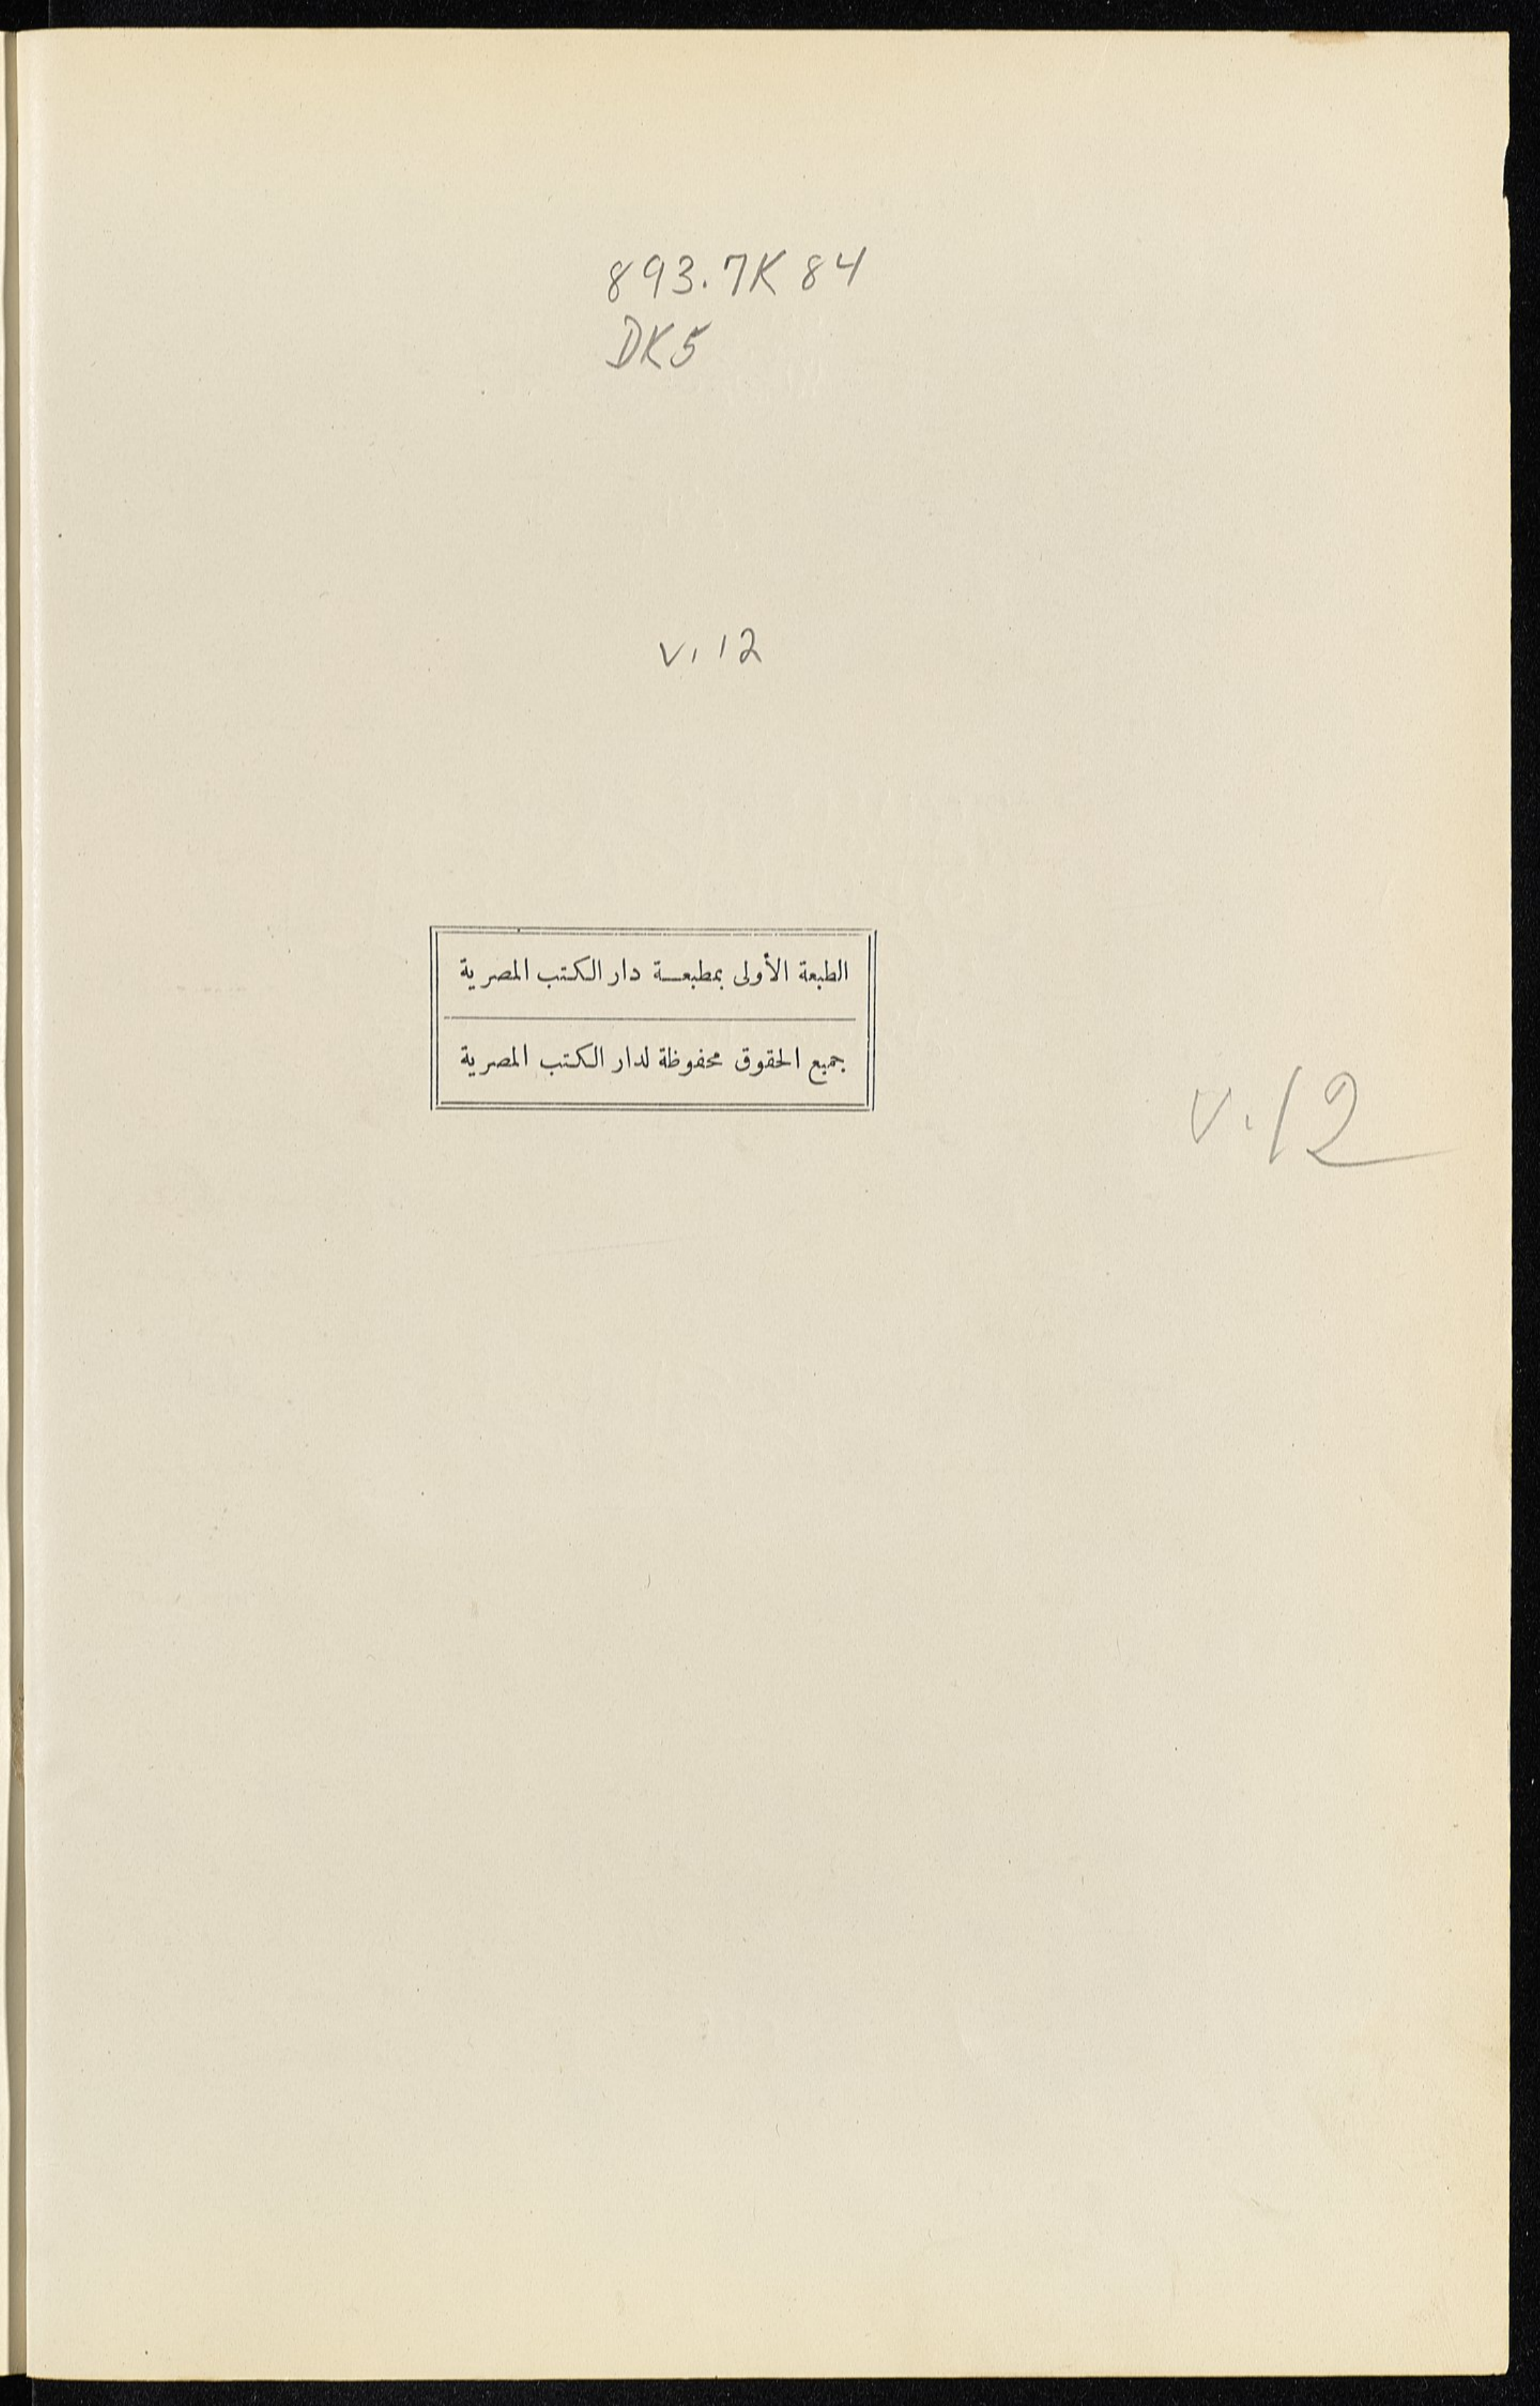 893.7K84
DK5
v. 12
الطبعة الأولى بمطبعة دار الكتب المصرية
جميع الحقوق محفوظة لدار الكتب المصرية
v. 12